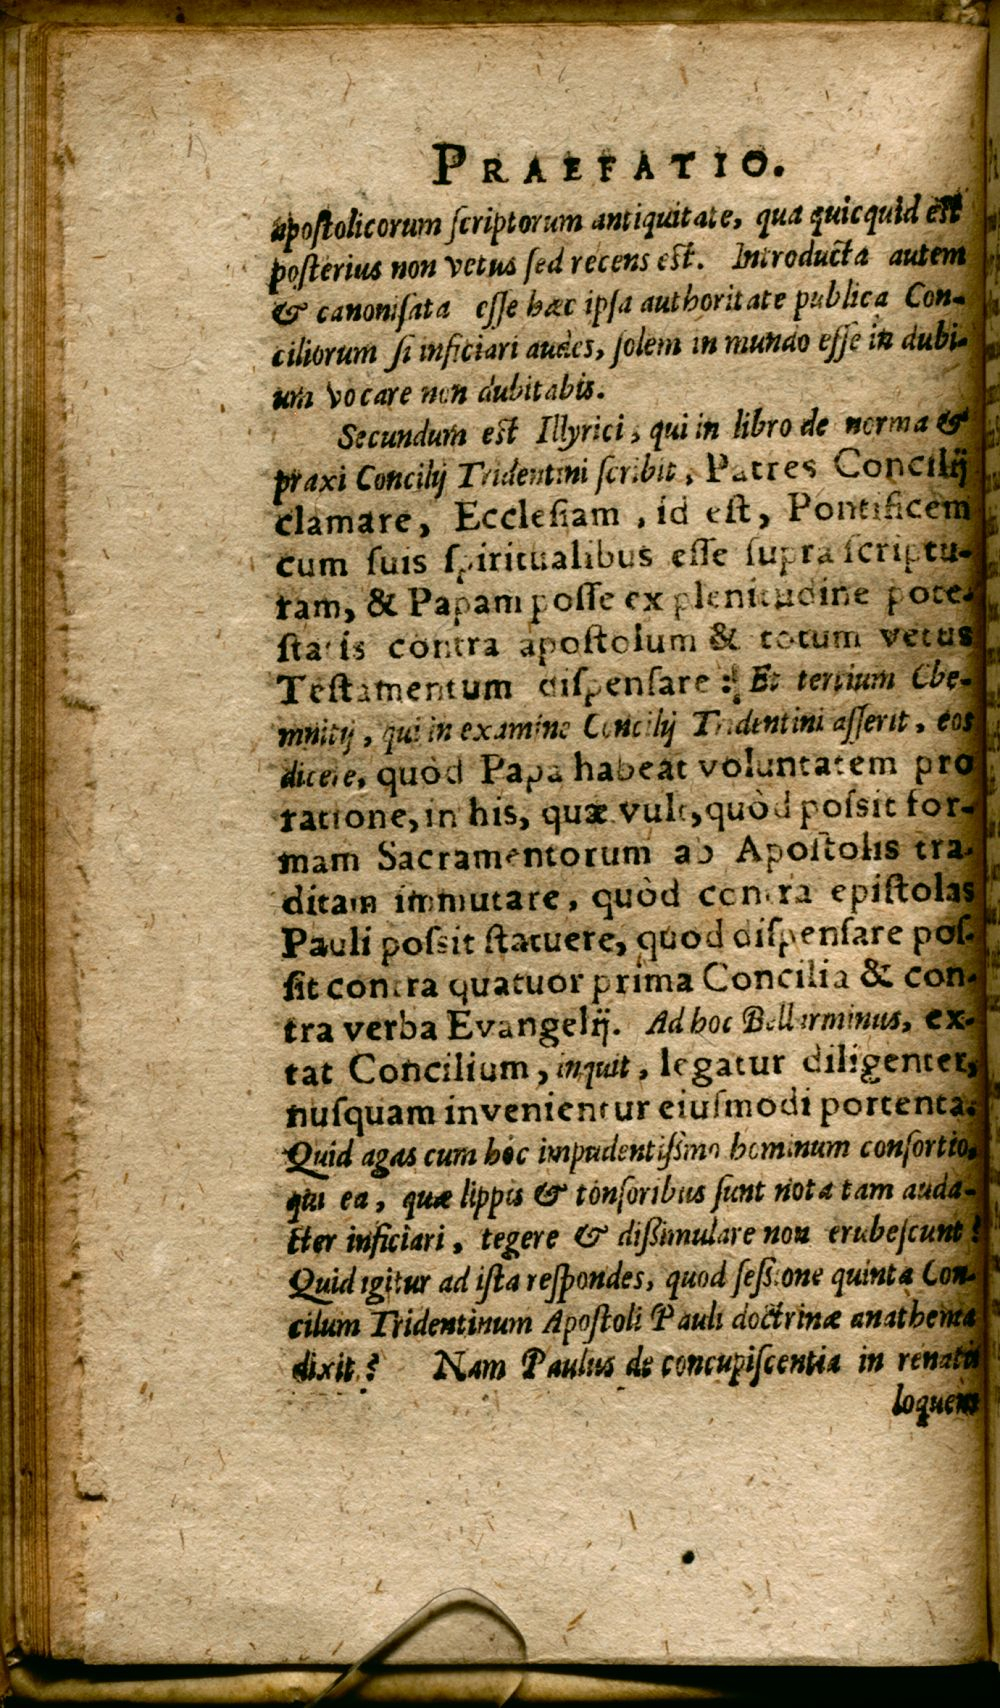 PRAEFATIO.
apostolicorum scriptorum antiquitate, qua quicquid est
posterius non vetus sed recens est. Introducta autem
& canonisata esse hæc ipsa authoritate publica Con-
ciliorum si inficiari audes, solem in mundo esse in dubi-
um vocare non dubitabis.
Secundum est Illyrici, qui in libro de norma &
praxi Concilij Tridentini scribit, Patres Concilij
clamare, Ecclesiam, id est, Pontificem
cum suis spiritualibus esse supra scriptu-
ram, & Papam posse ex plenitudine pote-
statis contra apostolum & totum vetus
Testamentum dispensare: Et tertium Che-
mnitij, qui in examine Concilij Tridentini asserit, eos
dicere, quòd Papa habeat voluntatem pro
ratione, in his, quæ vult, quòd possit for-
mam Sacramentorum ab Apostolis tra-
ditam immutare, quòd contra epistolas
Pauli possit statuere, quod dispensare pos-
sit contra quatuor prima Concilia & con-
tra verba Evangelij. Ad hoc Bellarminus, ex-
tat Concilium, inquit, legatur diligenter,
nusquam invenientur eiusmodi portenta.
Quid agas cum hoc impudentissimo hominum consortio,
qui ea, quæ lippis & tonsoribus sunt nota tam auda-
cter inficiari, tegere & dissimulare non erubescunt?
Quid igitur ad ista respondes, quod sessione quinta Con-
cilum Tridentinum Apostoli Pauli doctrinæ anathema
dixit? Nam Paulus de concupiscentia in renatis
loquens